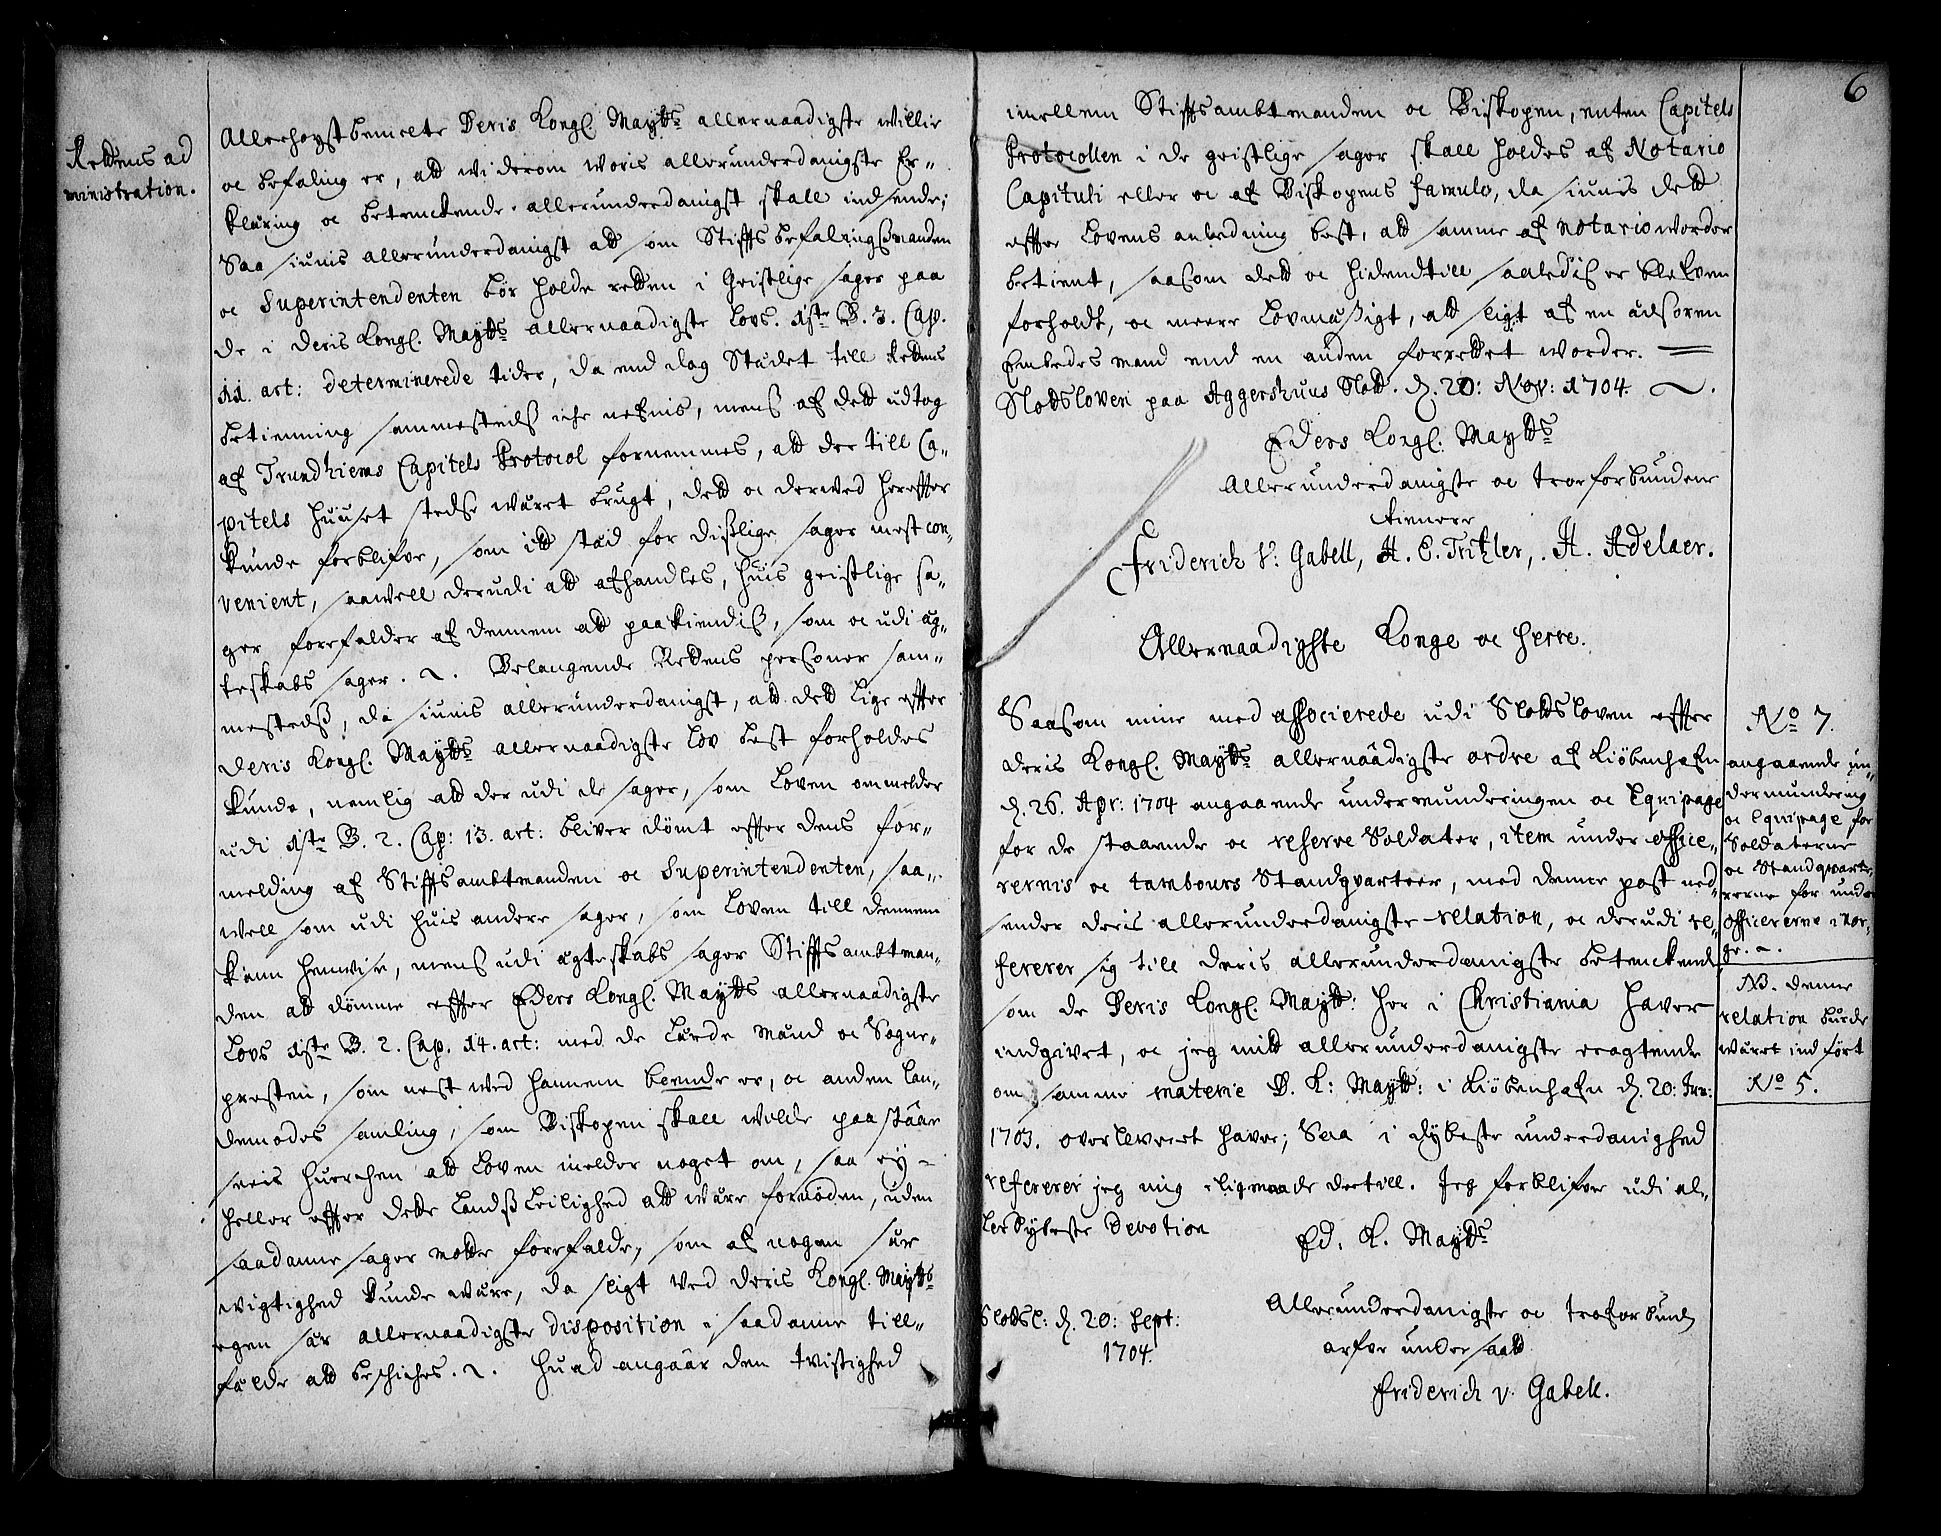 Rettens ad
ministration.
Allerhøystbemelte Deris Kongl. Maytts allernaadigste willie
oc befaling er, att wi derom woris allerunderdanigste Er-
klæring oc betenckende allerunderdanigst skall indsende;
Saa siunis allerunderdanigst att som Stifftsbefalingsmanden
oc Superintendenten bør holde retten i Geistlige sager paa
de i Deris Kongl. Maytts allernaadigste Lovs. 1ste B. 3. Cap.
11. art: determinerede tider, da end dog Stædet till Rettens
betienning sammesteds iche nefnis, mens af dett udtog
af Trundhiems Capitels Protocol fornemmes, att der till Ca-
pitels huuset stedse wæret brugt, dett oc derwed hereffter
kunde forblifve, som itt stæd for disslige sager mest con-
venient, saawell derudi att afhandles, huis geistlige sa-
ger forefalder af dennem att paakiendis, som oc udi æg-
teskabs sager. 2. Belangende Rettens personer sam-
mesteds, da siunis allerunderdanigst, att dett lige effter
Deris Kongl. Maytts allernaadigste lov best forholdes
kunde, nemlig att der udi de sager, som loven ommelder
udi 1ste B. 2. Cap: 13. art: bliver dømt effter dens for-
melding af Stifftsambtmanden oc Superintendenten, saa-
well som udi huis andere sager, som loven till dennem
kann henwise, mens udi ægteskabs sager Stifftsambtman-
den att dømme effter Eders Kongl. Maytts allernaadigste
Lovs 1ste B. 2. Cap. 14. art: med de lærde mænd oc Sogne-
presten, som nest wed hannem boende er, oc anden lan-
demodes samling, som Biskopen skall welde paastaar
hellor effter dette landsbeilighed att wære fornøden, uden
saadanne sager motte forefalde, som af nogen sær
wigtighed kunde wære, da sligt ved Deris Kongl. Maytts
egen sær allernaadigste disposition i saadanne till-
fælde att beschiches. 2. Huad angaar den twistighed
6
imellem Stifftsambtmanden oc Biskopen, enten Capitels
Protocollen i de geistlige sager skall holdes af Notario
Capituli eller oc af Biskopens famulo, da siunis dett
effter Lovens anledning best, att samme af notario worder
betient, saasom dett oc hidendtill saaledis er blefven
forholdt, oc meere Lovmæssigt, att sligt af en edsoren
Embedesmand end en anden forrettet worder.
Slottsloven paa Aggershuus Slott. d. 20: Nov: 1704.
Eders Kongl. Maytts
Allerunderdanigste oc troeforbundene
tienere
Friderich V: Gabell, H. C. Tritzler, H. Adelaer.
Allernaadigste Konge oc Herre.
Saasom mine med associerede udi Slottsloven effter
Deris Kongl. Maytts allernaadigste ordre af Kiøbenhafn
d. 26. Apr: 1704 angaaende undermunderingen oc Equipage
for de staaende oc reserve Soldater, item under office-
rernis oc tambours Standqvarteer, med denne post ned-
sender deris allerunderdanigste relation, oc derudi re-
fererer sig till deris allerunderdanigste betenckende
som de Deris Kongl. Maytt: her i Christiania haver
indgivet, oc jeg mitt allerunderdanigste eragtende
om samme materie D. K: Maytt: i Kiøbenhafn d. 20: Jan:
1703. overleveret haver; Saa i dybeste underdanighed
refererer jeg mig iligemaade dertill. Jeg forblifver udi al-
lerdybeste Devotion
Ed. K. Maytts
Slottsl: d. 20: Sept:
1704.
Allerunderdanigste oc troeforbund
arfve undersaatt
Friderich v. Gabell.
No 7.
angaaende un-
dermundering
oc Equipage for
Soldaterne
oc Standqvarte-
rerne for under
officererne i Nor-
ge.
NB. denne
relation burde
wæret indført
No 5.